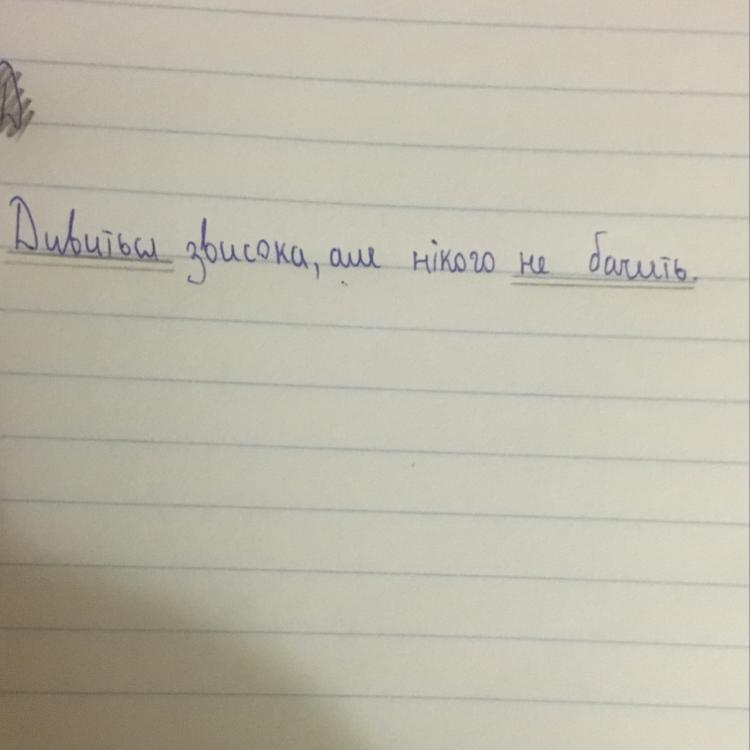 Дивиться звисока, але нікого не бачить.